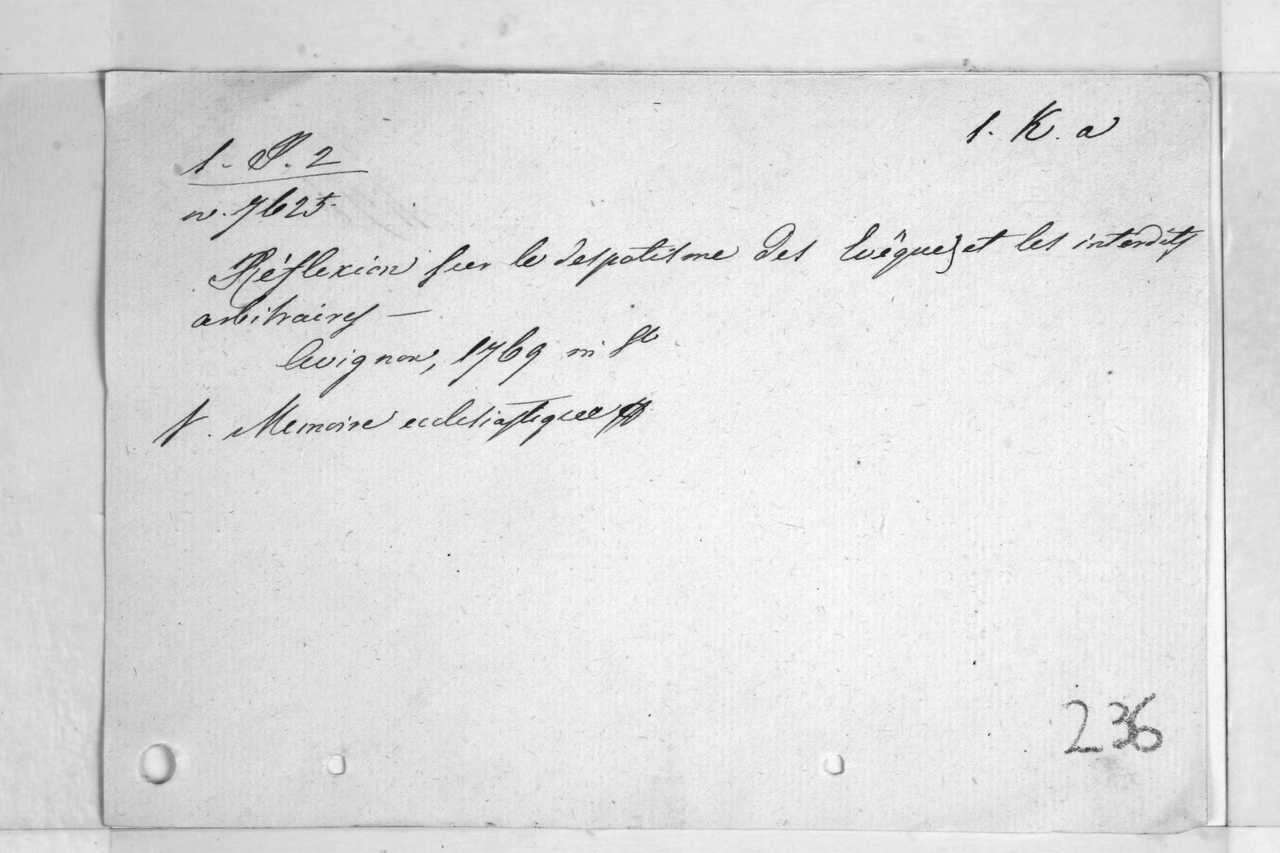 1. K. a
1. P. 2
n. 7625.
Réflexion sur le despotisme des Evêques et les interdits
arbitraires —
Avignon, 1769 in 8º
V. Memoire ecclesiastique
236